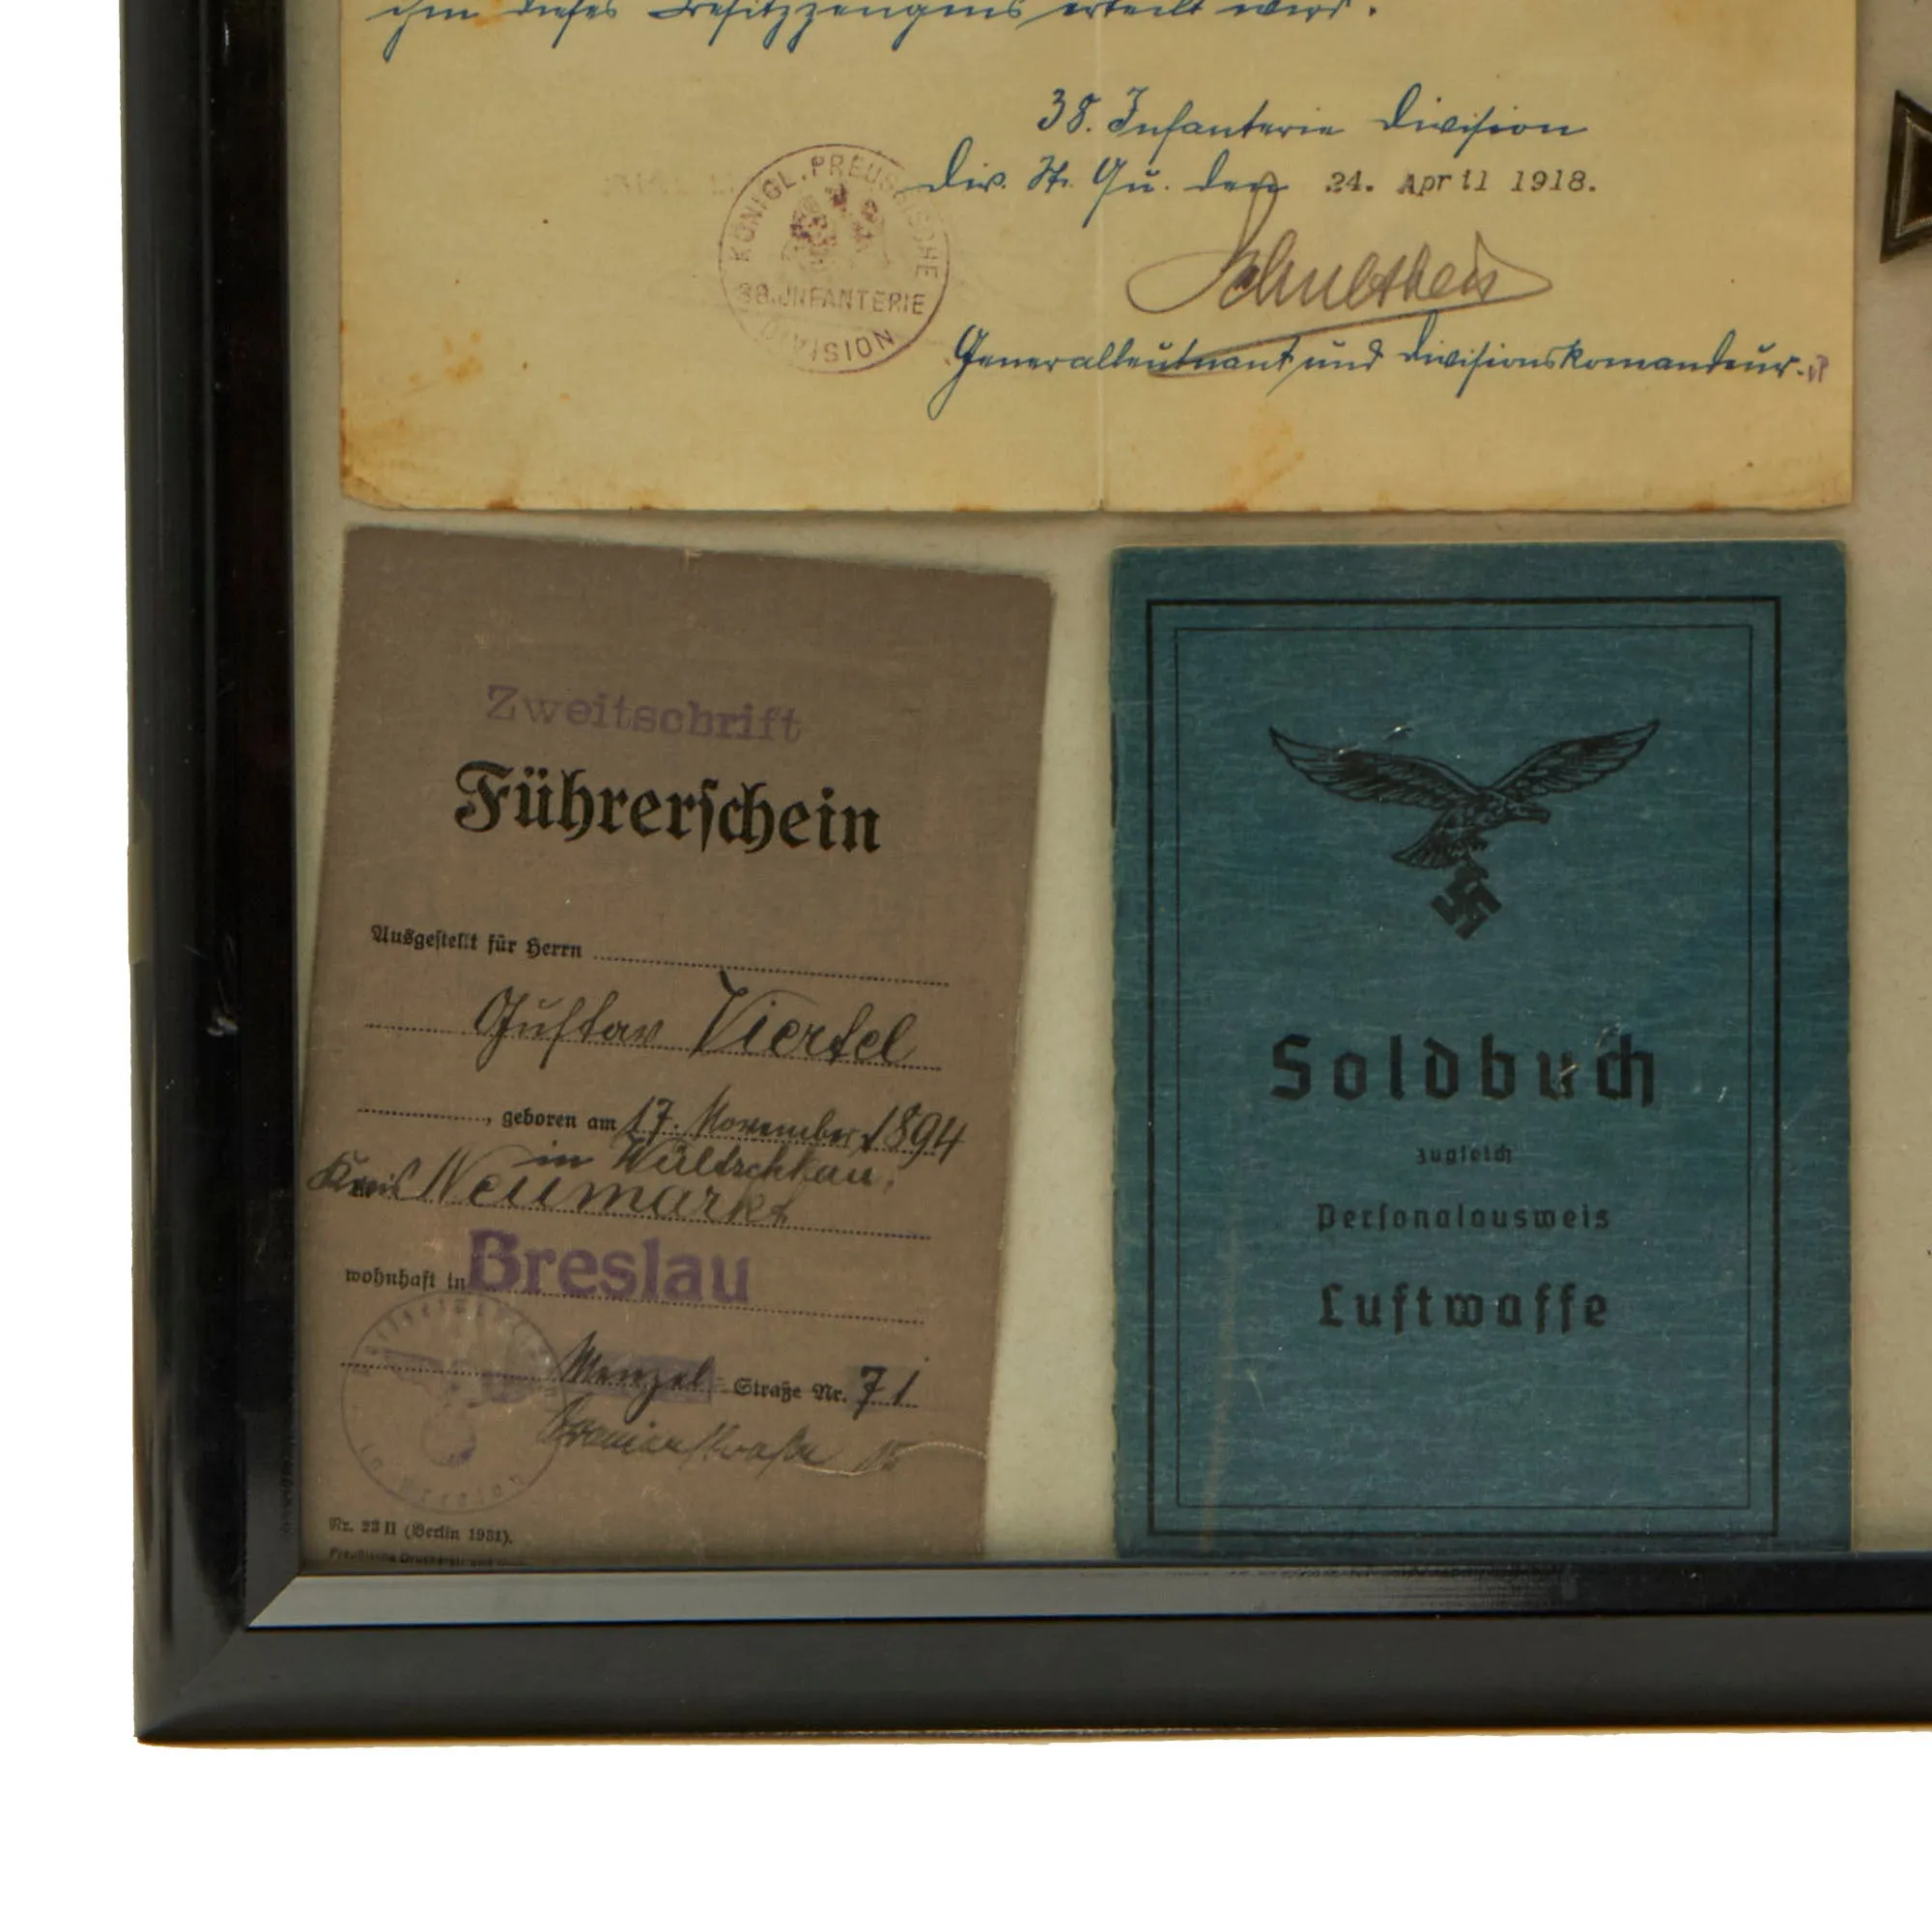 ihm dieses Besitzzeugnis erteilt wird.
38. Infanterie Division
Div. St. Qu. den 24. April 1918.
KÖNIGL. PREUSSISCHE
38. INFANTERIE
DIVISION
Schultheis
Generalleutnant und Divisionskomandeur.
Zweitschrift
Führerschein
Ausgestellt für Herrn
Gustav Viertel
, geboren am 17. November 1894
in Wültschkau,
Kreis Neumarkt
wohnhaft in Breslau
Menzel- Straße Nr. 71
Nr. 23 II (Berlin 1931).
Soldbuch
zugleich
Personalausweis
Luftwaffe